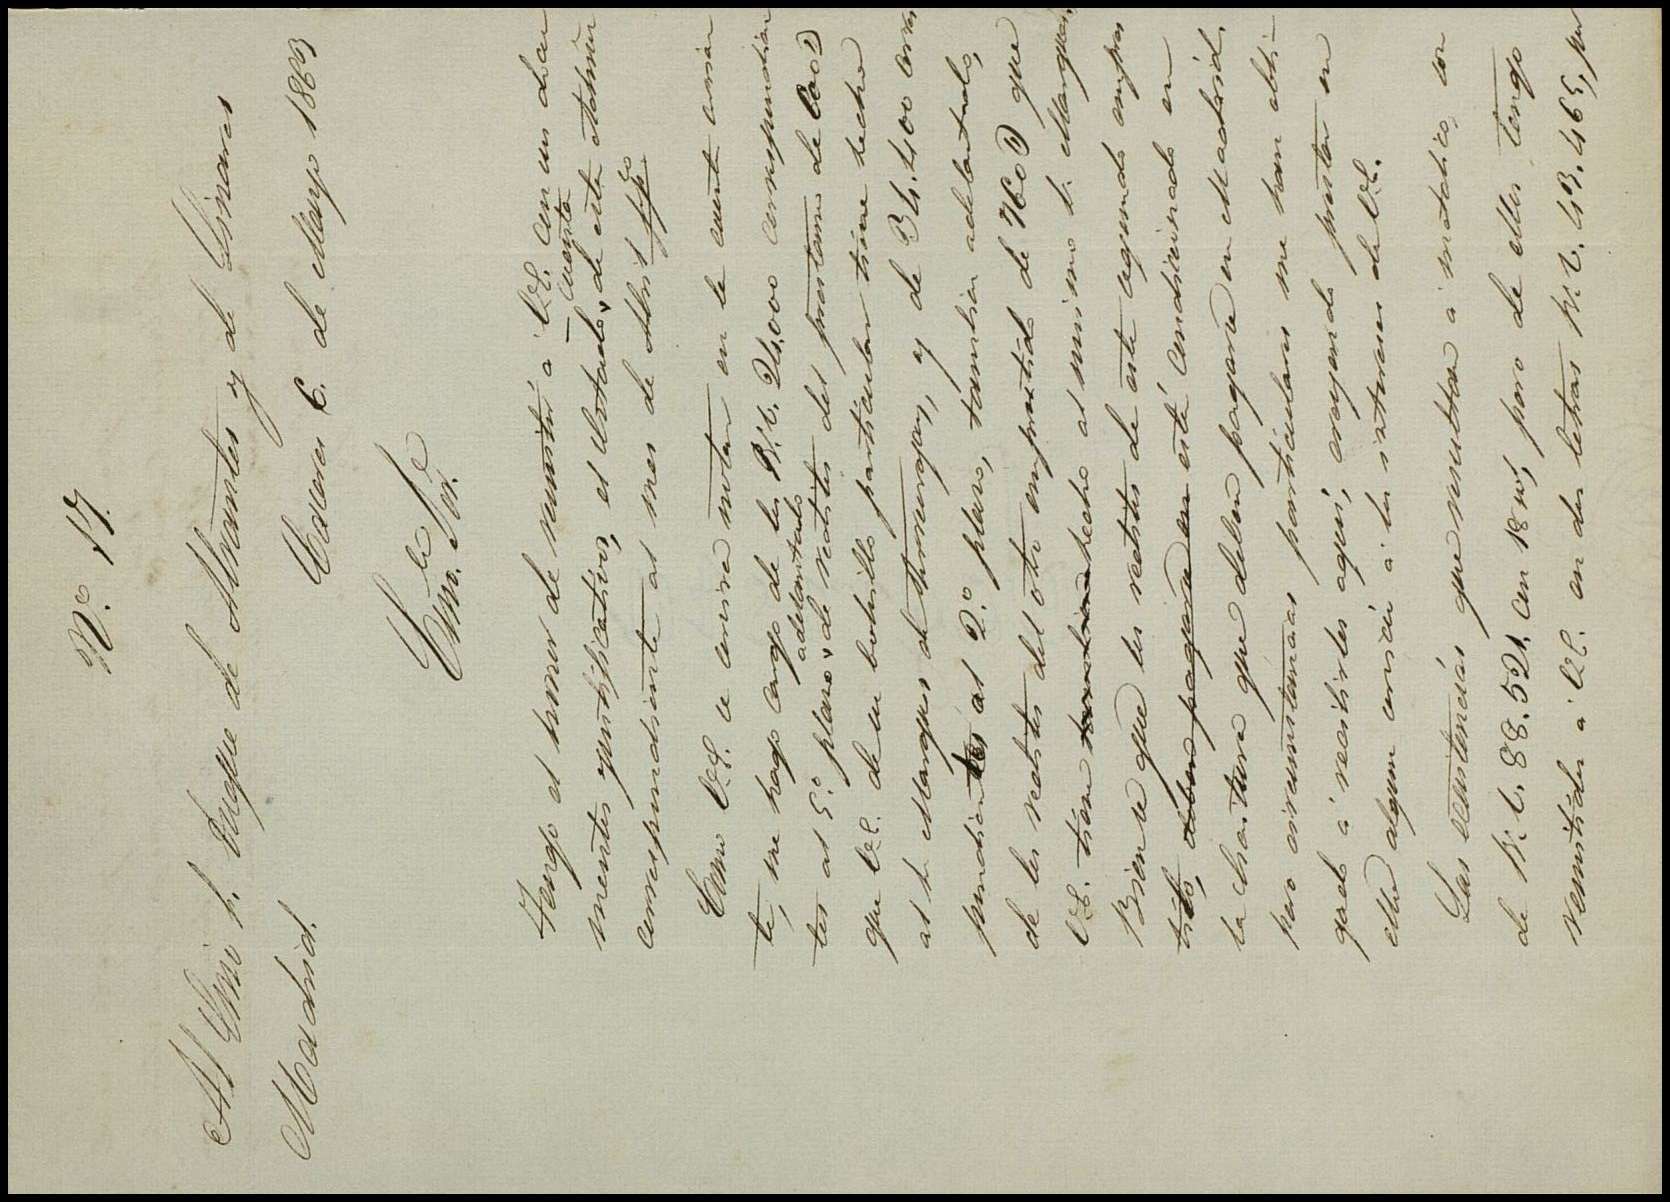 N.º 17.
Al Exmo S. Duque de Abrantes y de Linares
Madrid.
Caceres 6. de Mayo 1863
Exmo. Sõr.
Tengo el honor de remitir á V.E. con un solo
cuenta
mentes justificativos, el estado, de esta Admin
correspondiente al mes de Abril ppdo
Como V.E. se servirá notar en la cuenta corrien
te, me hago cargo de los R.v. 24.000 correspondien
adelantado
tes al 5.º plazo, de réditos del prestamo de
que V.E. de su bolsillo particular tiene hecho
al Sr Marques de y de 34.400 corres
pondientes al 2.º plazo, tambien adelantado,
de los réditos del otro emprestito de que
V.E. tiene tambien hecho al mismo Sr. Marques,
Bien se que los réditos de este segundo empres
tito, deben pagarse en está condicionado en
la Escritura que deben pagarse en Madrid,
pero circunstancias particulares me han obli-
gado á recibirlos aquí, creyendo prestar en
ello algun servicio á los intereses de V.E.
Las existencias que resultan á metalico, son
de R. v. 88.521. con 18 mrs, pero de ellos tengo
remitidos á V.E. en dos letras R. v. 43.465, por